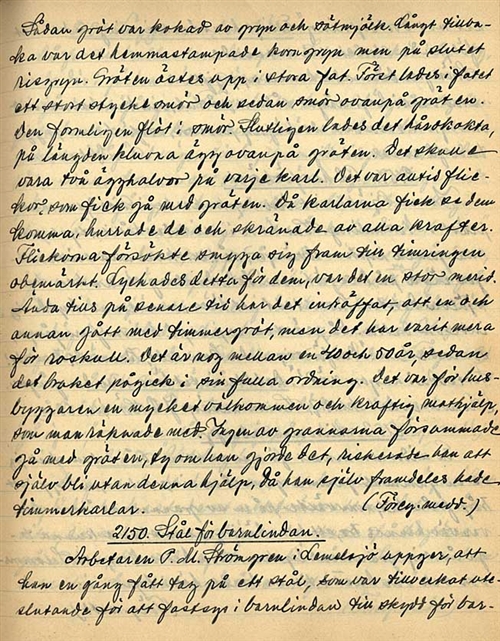 Sådan gröt var kokad av gryn och sötmjölk. Långt tillba-
ka var det hemmastampade korngryn men på slutet
risgryn. Gröten östes upp i stora fat. Först lades i fatet
ett stort stycke smör och sedan smör ovanpå gröten.
Den formligen flöt i smör. Slutligen lades det hårdkokta,
på längden kluvna ägg ovanpå gröten. Det skulle
vara två ägghalvor på varje karl. Det var alltid flic-
kor, som fick gå med gröten. Då karlarna fick se dem
komma, hurrade de och skränade av alla krafter.
Flickorna försökte smyga sig fram till timringen
obemärkt. Lyckades detta för dem, var det en stor merid.
Ända tills på senare tid har det inträffat, att en och
annan gått med timmergröt, men det har varit mera
för roskull. Det är nog mellan en 40 och 50 år, sedan
det bruket pågick i sin fulla ordning. Det var för hus-
byggaren en mycket välkommen och kraftig mathjälp,
som man räknade med. Ingen av grannarna försummade
gå med gröten, ty om han gjorde det, riskerade han att
själv bli utan denna hjälp, då han själv framdeles hade
timmerkarlar. (Förey. medd.)
2150. Stål för barnlindan.
Arbetaren P. M. Strömgren i Lemelsjö uppger, att
han en gång fått tag på ett stål, som var tillverkat ute-
slutande för att fastsys i barnlindan till skydd för bar-